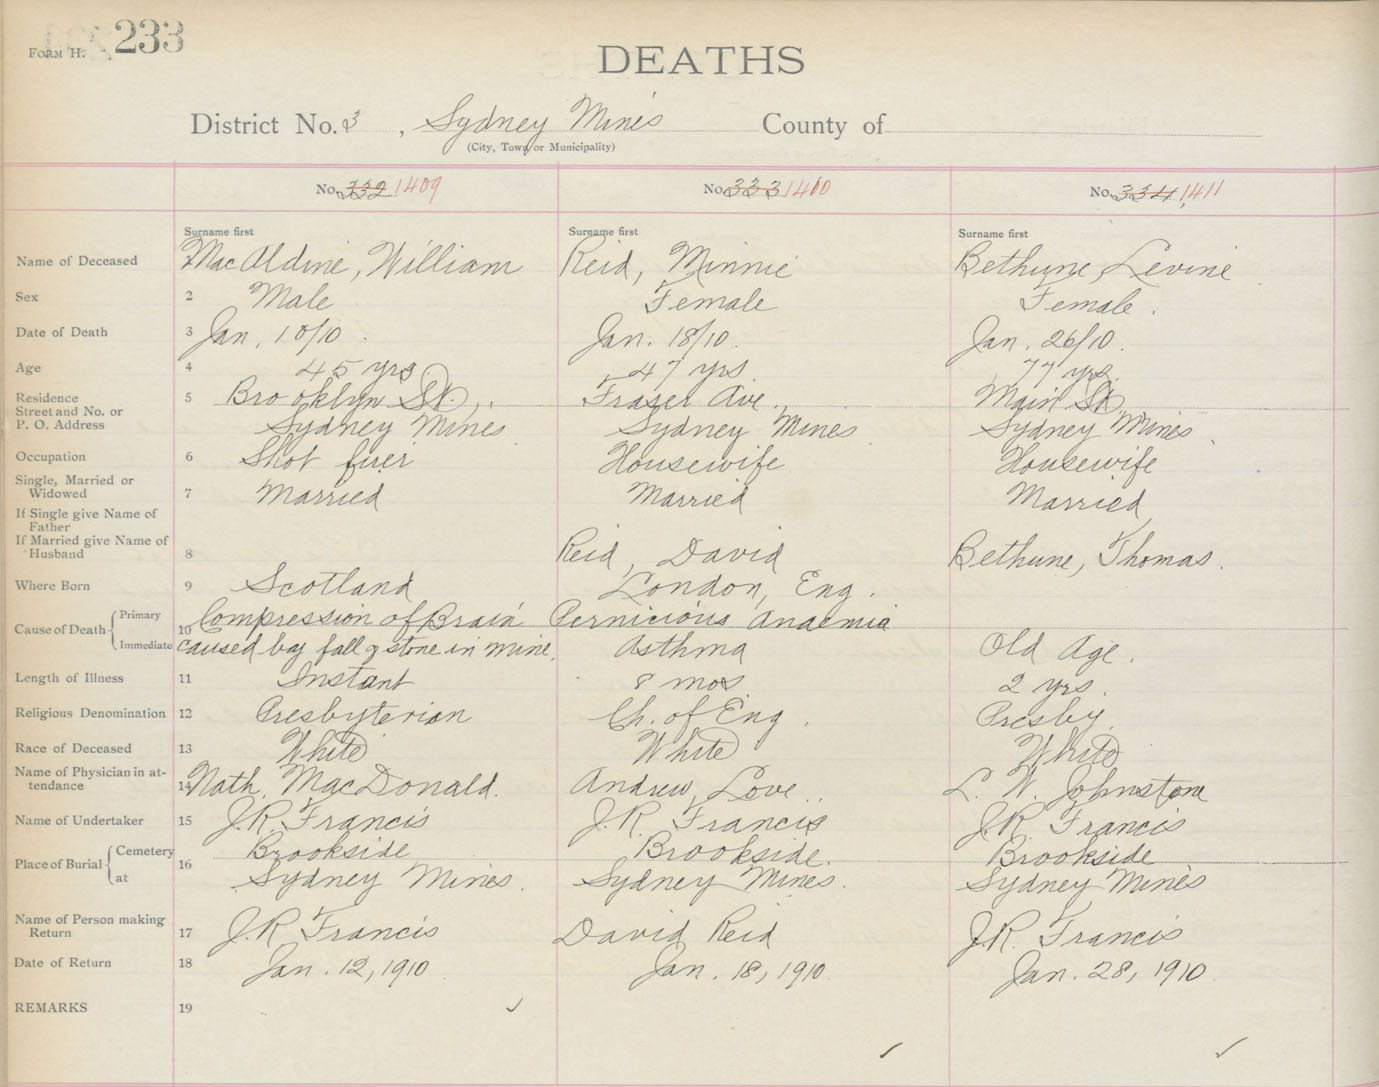 FORM H. 233
DEATHS
District No. 3, Sydney Mines County of
(City, Town or Municipality)
No. 332 1409 No. 333 1410 No. 334 1411
Surname first Surname first Surname first
Name of Deceased MacAldine, William Reid, Minnie Bethune, Levine
Sex 2 Male Female Female.
Date of Death 3 Jan. 10/10. Jan. 18/10. Jan. 26/10.
Age 4 45 yrs 47 yrs 77 yrs.
Residence 5 Brooklyn St., Fraser Ave., Main St.
Street and No. or
P. O. Address Sydney Mines Sydney Mines Sydney Mines.
Occupation 6 Shot firer Housewife Housewife
Single, Married or
Widowed 7 Married Married Married
If Single give Name of
Father
If Married give Name of
Husband 8 Reid, David Bethune, Thomas.
Where Born 9 Scotland London, Eng.
Cause of Death Primary 10 Compression of Brain Pernicious Anaemia
Immediate caused by fall of stone in mine. Asthma Old Age.
Length of Illness 11 Instant 8 mos 2 yrs.
Religious Denomination 12 Presbyterian Ch. of Eng. Presby.
Race of Deceased 13 White White White
Name of Physician in at-
tendance 14 Nath. MacDonald. Andrew Love.. L. W. Johnstone
Name of Undertaker 15 J.R. Francis J.R. Francis J.R. Francis
Place of Burial Cemetery 16 Brookside Brookside. Brookside
at Sydney Mines. Sydney Mines. Sydney Mines
Name of Person making
Return 17 J.R Francis David Reid J.R. Francis
Date of Return 18 Jan. 12, 1910 Jan. 18, 1910. Jan. 28, 1910
REMARKS 19